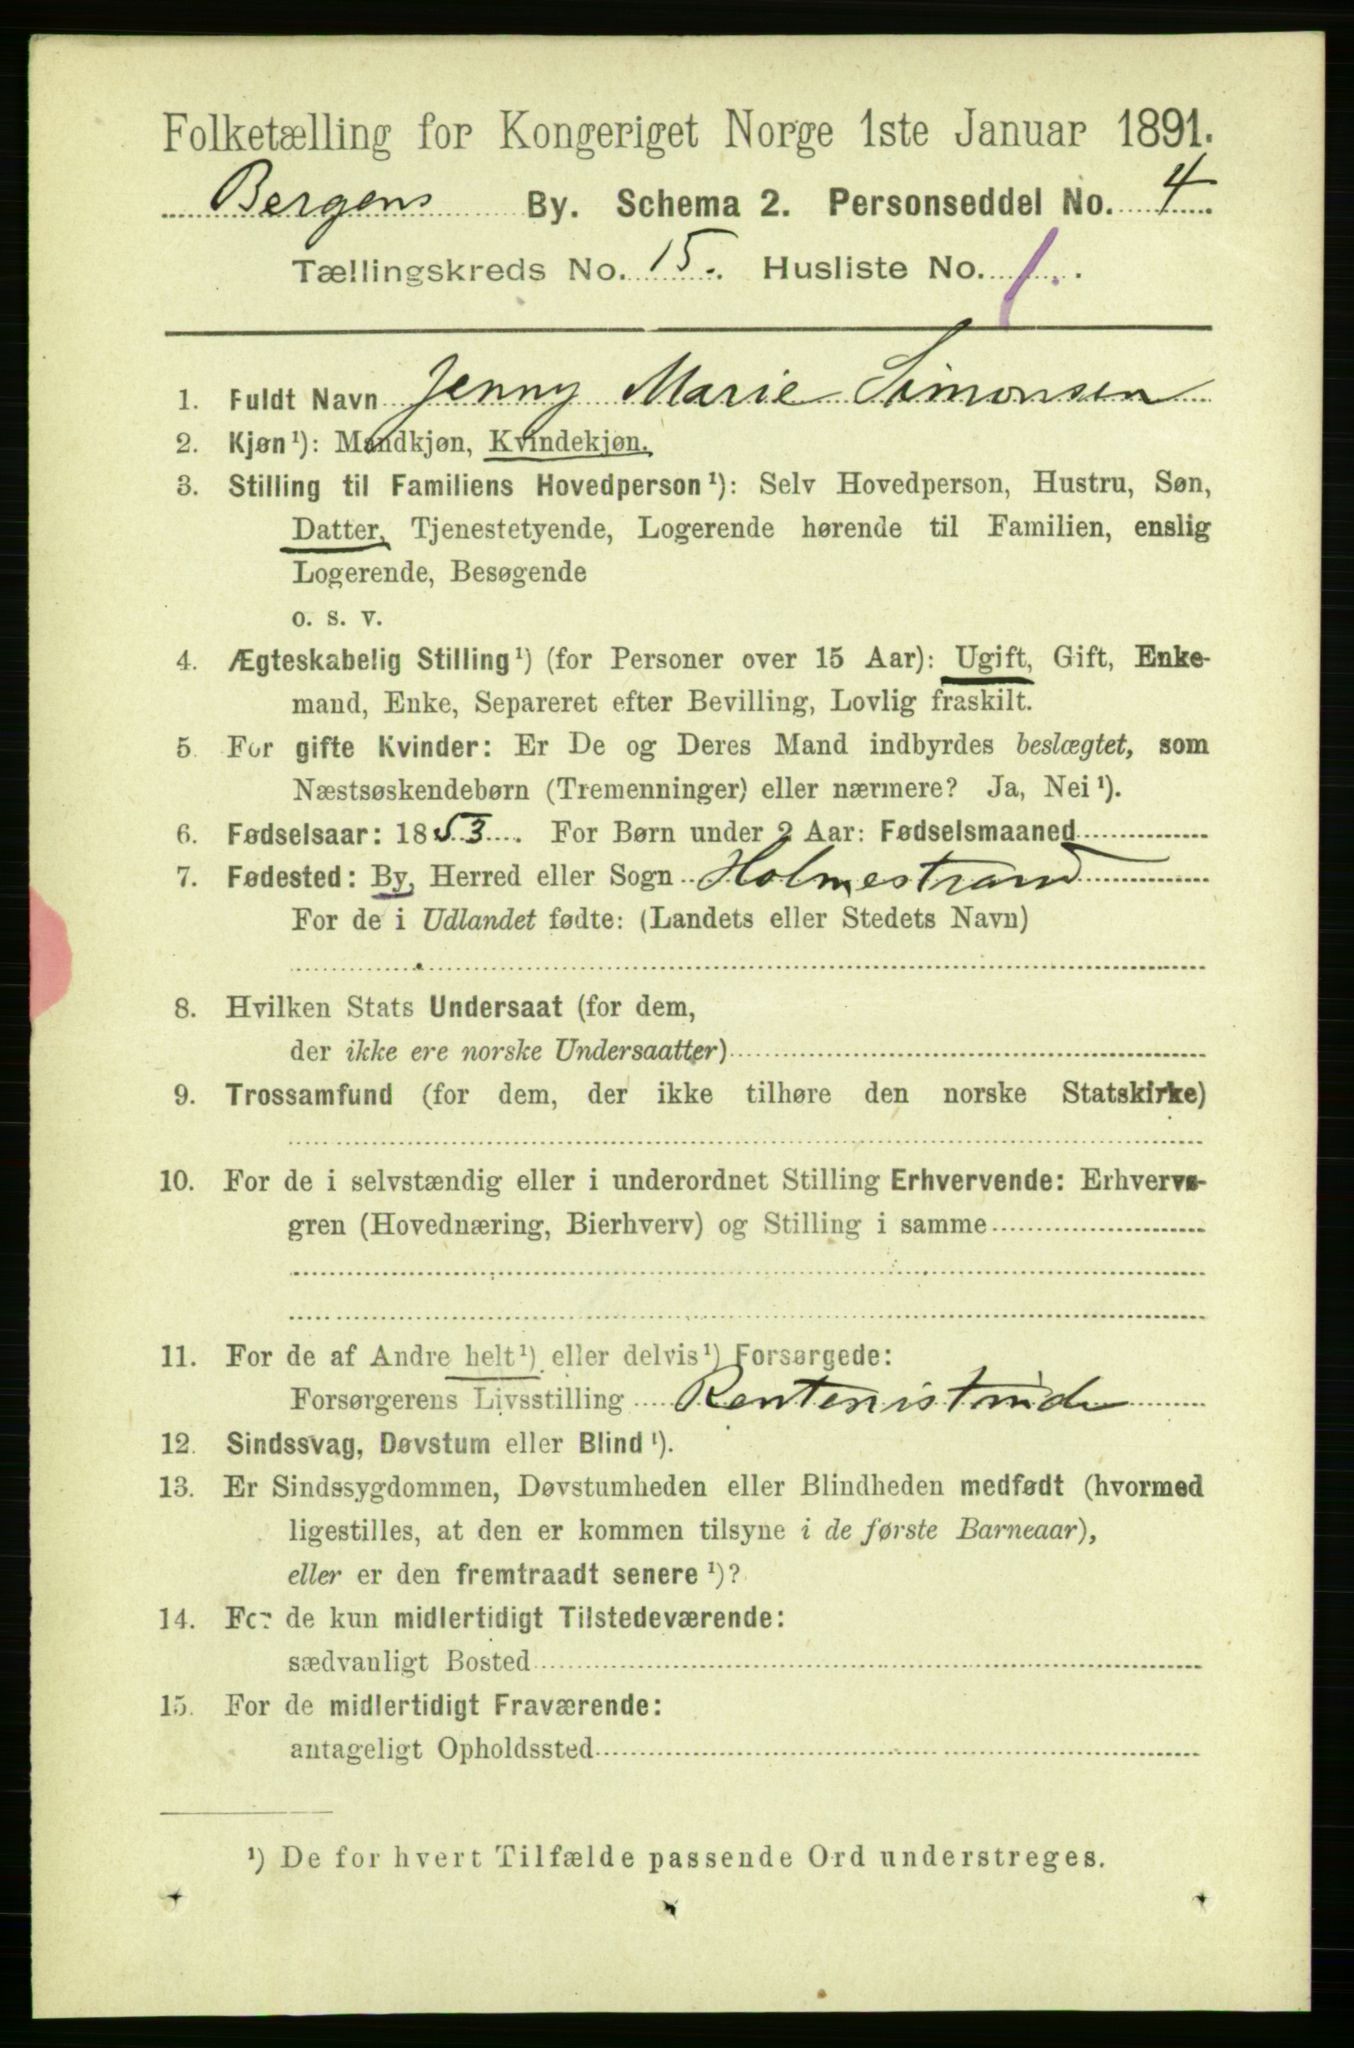 Folketælling for Kongeriget Norge 1ste Januar 1891.
Bergens By. Schema 2. Personseddel No. 4
Tællingskreds No. 15. Husliste No. 1.
1. Fuldt Navn Jenny Marie Simonsen
2. Kjøn¹): Mandkjøn, Kvindekjøn.
3. Stilling til Familiens Hovedperson¹): Selv Hovedperson, Hustru, Søn,
Datter, Tjenestetyende, Logerende hørende til Familien, enslig
Logerende, Besøgende
o. s. v.
4. Ægteskabelig Stilling¹) (for Personer over 15 Aar): Ugift, Gift, Enke-
mand, Enke, Separeret efter Bevilling, Lovlig fraskilt.
5. For gifte Kvinder: Er De og Deres Mand indbyrdes beslægtet, som
Næstsøskendebørn (Tremenninger) eller nærmere? Ja, Nei¹).
6. Fødselsaar: 1853. For Børn under 2 Aar: Fødselsmaaned
7. Fødested: By, Herred eller Sogn Holmestrand
For de i Udlandet fødte: (Landets eller Stedets Navn)
8. Hvilken Stats Undersaat (for dem,
der ikke ere norske Undersaatter)
9. Trossamfund (for dem, der ikke tilhøre den norske Statskirke)
10. For de i selvstændig eller i underordnet Stilling Erhvervende: Erhvervs-
gren (Hovednæring, Bierhverv) og Stilling i samme
11. For de af Andre helt¹) eller delvis¹) Forsørgede:
Forsørgerens Livsstilling Rentenistinde
12. Sindssvag, Døvstum eller Blind¹).
13. Er Sindssygdommen, Døvstumheden eller Blindheden medfødt (hvormed
ligestilles, at den er kommen tilsyne i de første Barneaar),
eller er den fremtraadt senere¹)?
14. For de kun midlertidigt Tilstedeværende:
sædvanligt Bosted
15. For de midlertidigt Fraværende:
antageligt Opholdssted
¹) De for hvert Tilfælde passende Ord understreges.